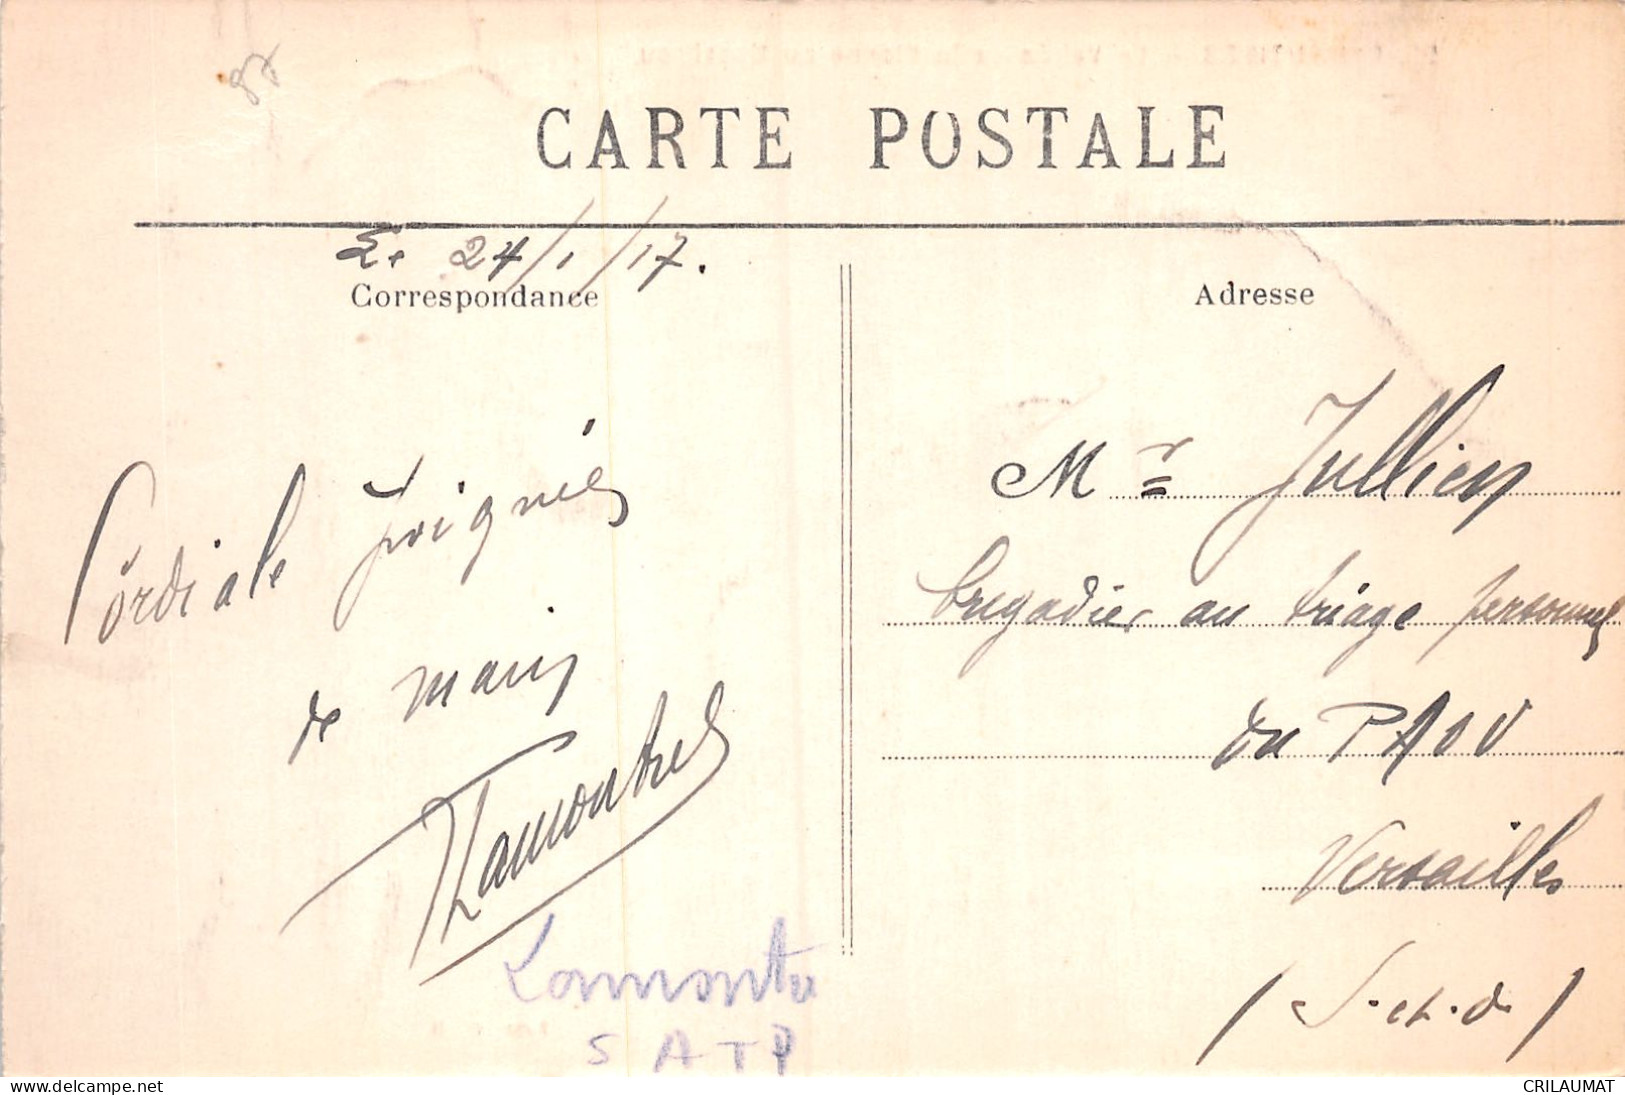 87
CARTE POSTALE
Le 24/1/17.
Correspondance
Cordiale poignée
de main
Lamontre
Lamontre
S A T P
Adresse
Mr Jullien
brigadier au triage personnel
du PAOV
Versailles
(S.et.O)
www.delcampe.net
CRILAUMAT